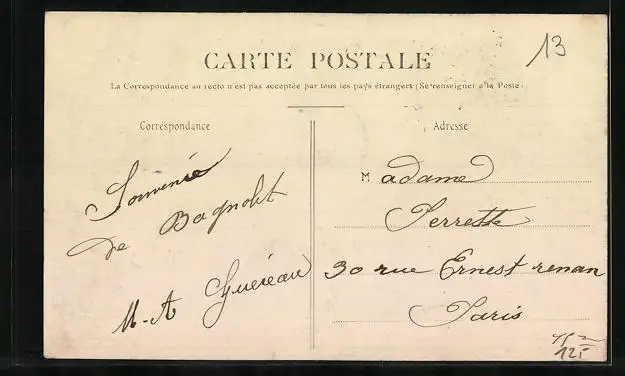 13
CARTE POSTALE
La Correspondance au recto n'est pas acceptée par tous les pays étrangers (Se renseigner à la Poste)
Correspondance
Souvenir
de Bagnolet
M-A Guéreau
Adresse
Madame
Perrette
30 rue Ernest renan
Paris